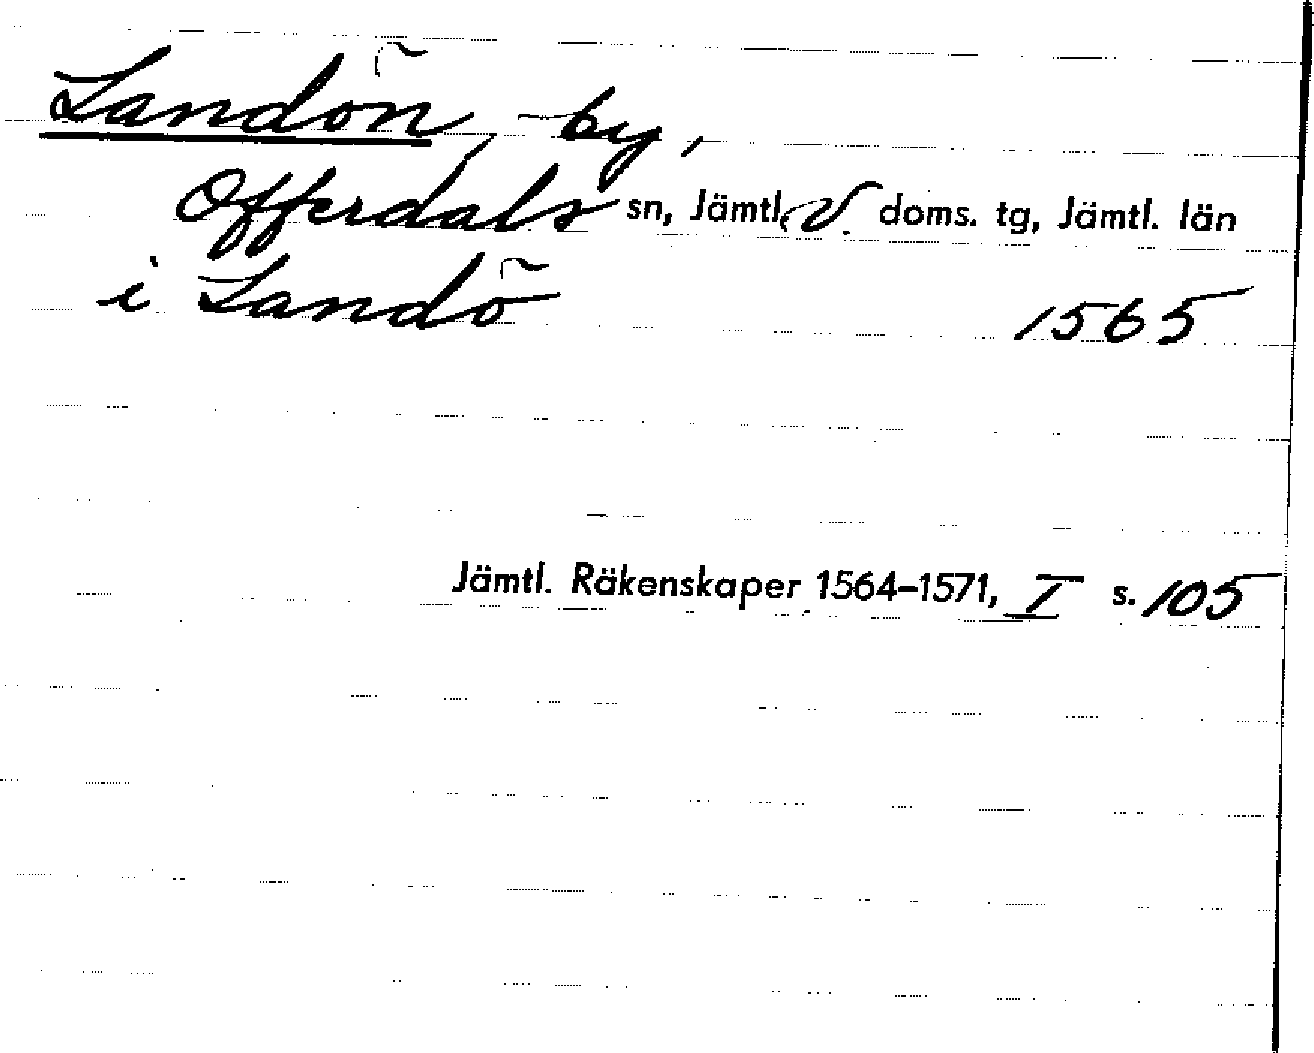 Landön, by,
Offerdals sn, Jämtl. V. doms. tg, Jämtl. län
i Landö 1565
Jämtl. Räkenskaper 1564–1571, I s. 105